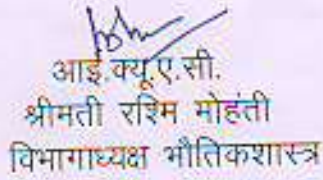 आई.क्यू.ए.सी.
श्रीमती रश्मि मोहंती
विभागाध्यक्ष भौतिकशास्त्र